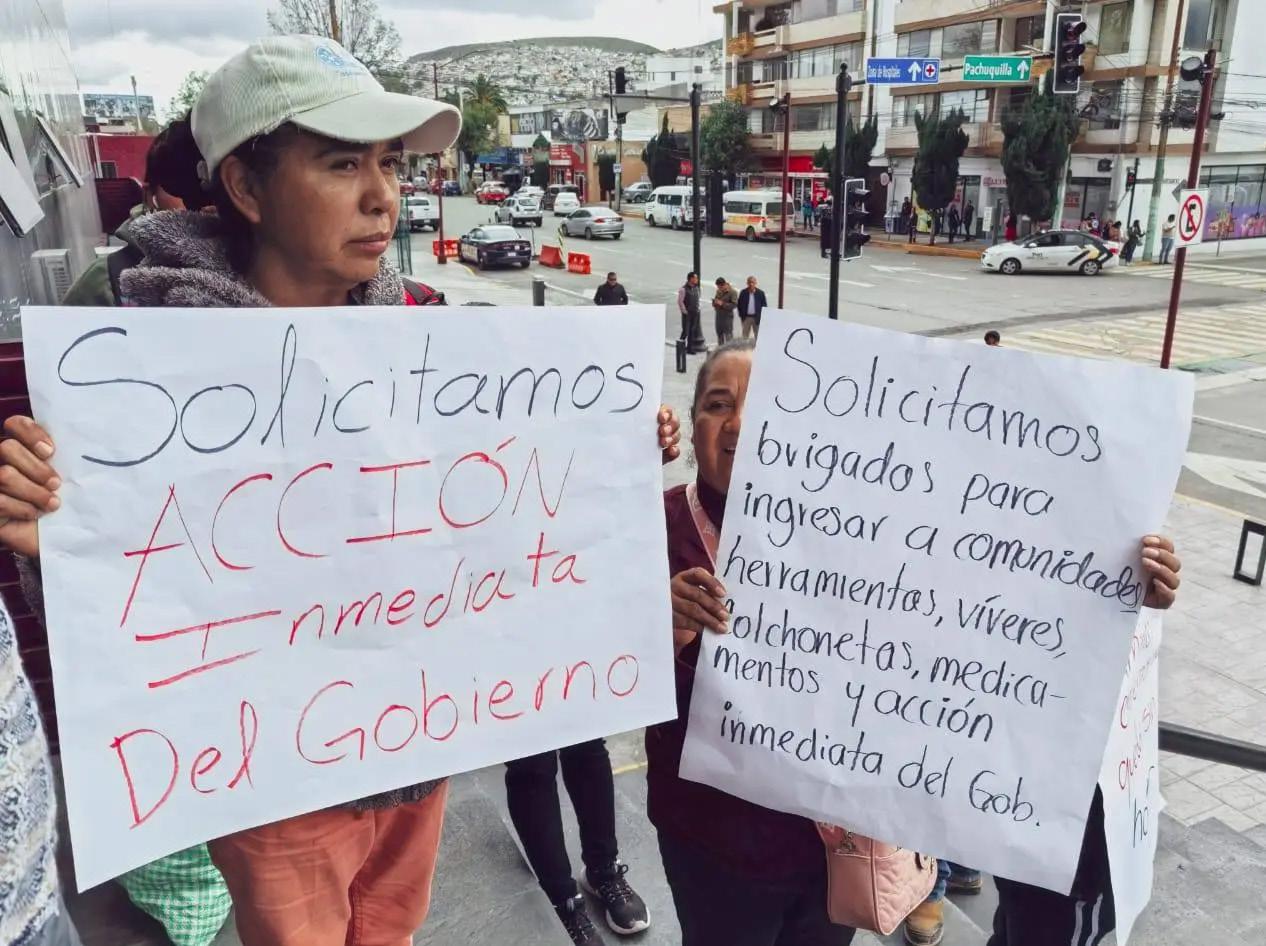 Solicitamos
ACCIÓN
Inmediata
Del Gobierno
Solicitamos
brigadas para
ingresar a comunidades
herramientas, víveres,
colchonetas, medica-
mentos y acción
inmediata del Gob.
Zona de Hospitales
Pachuquilla